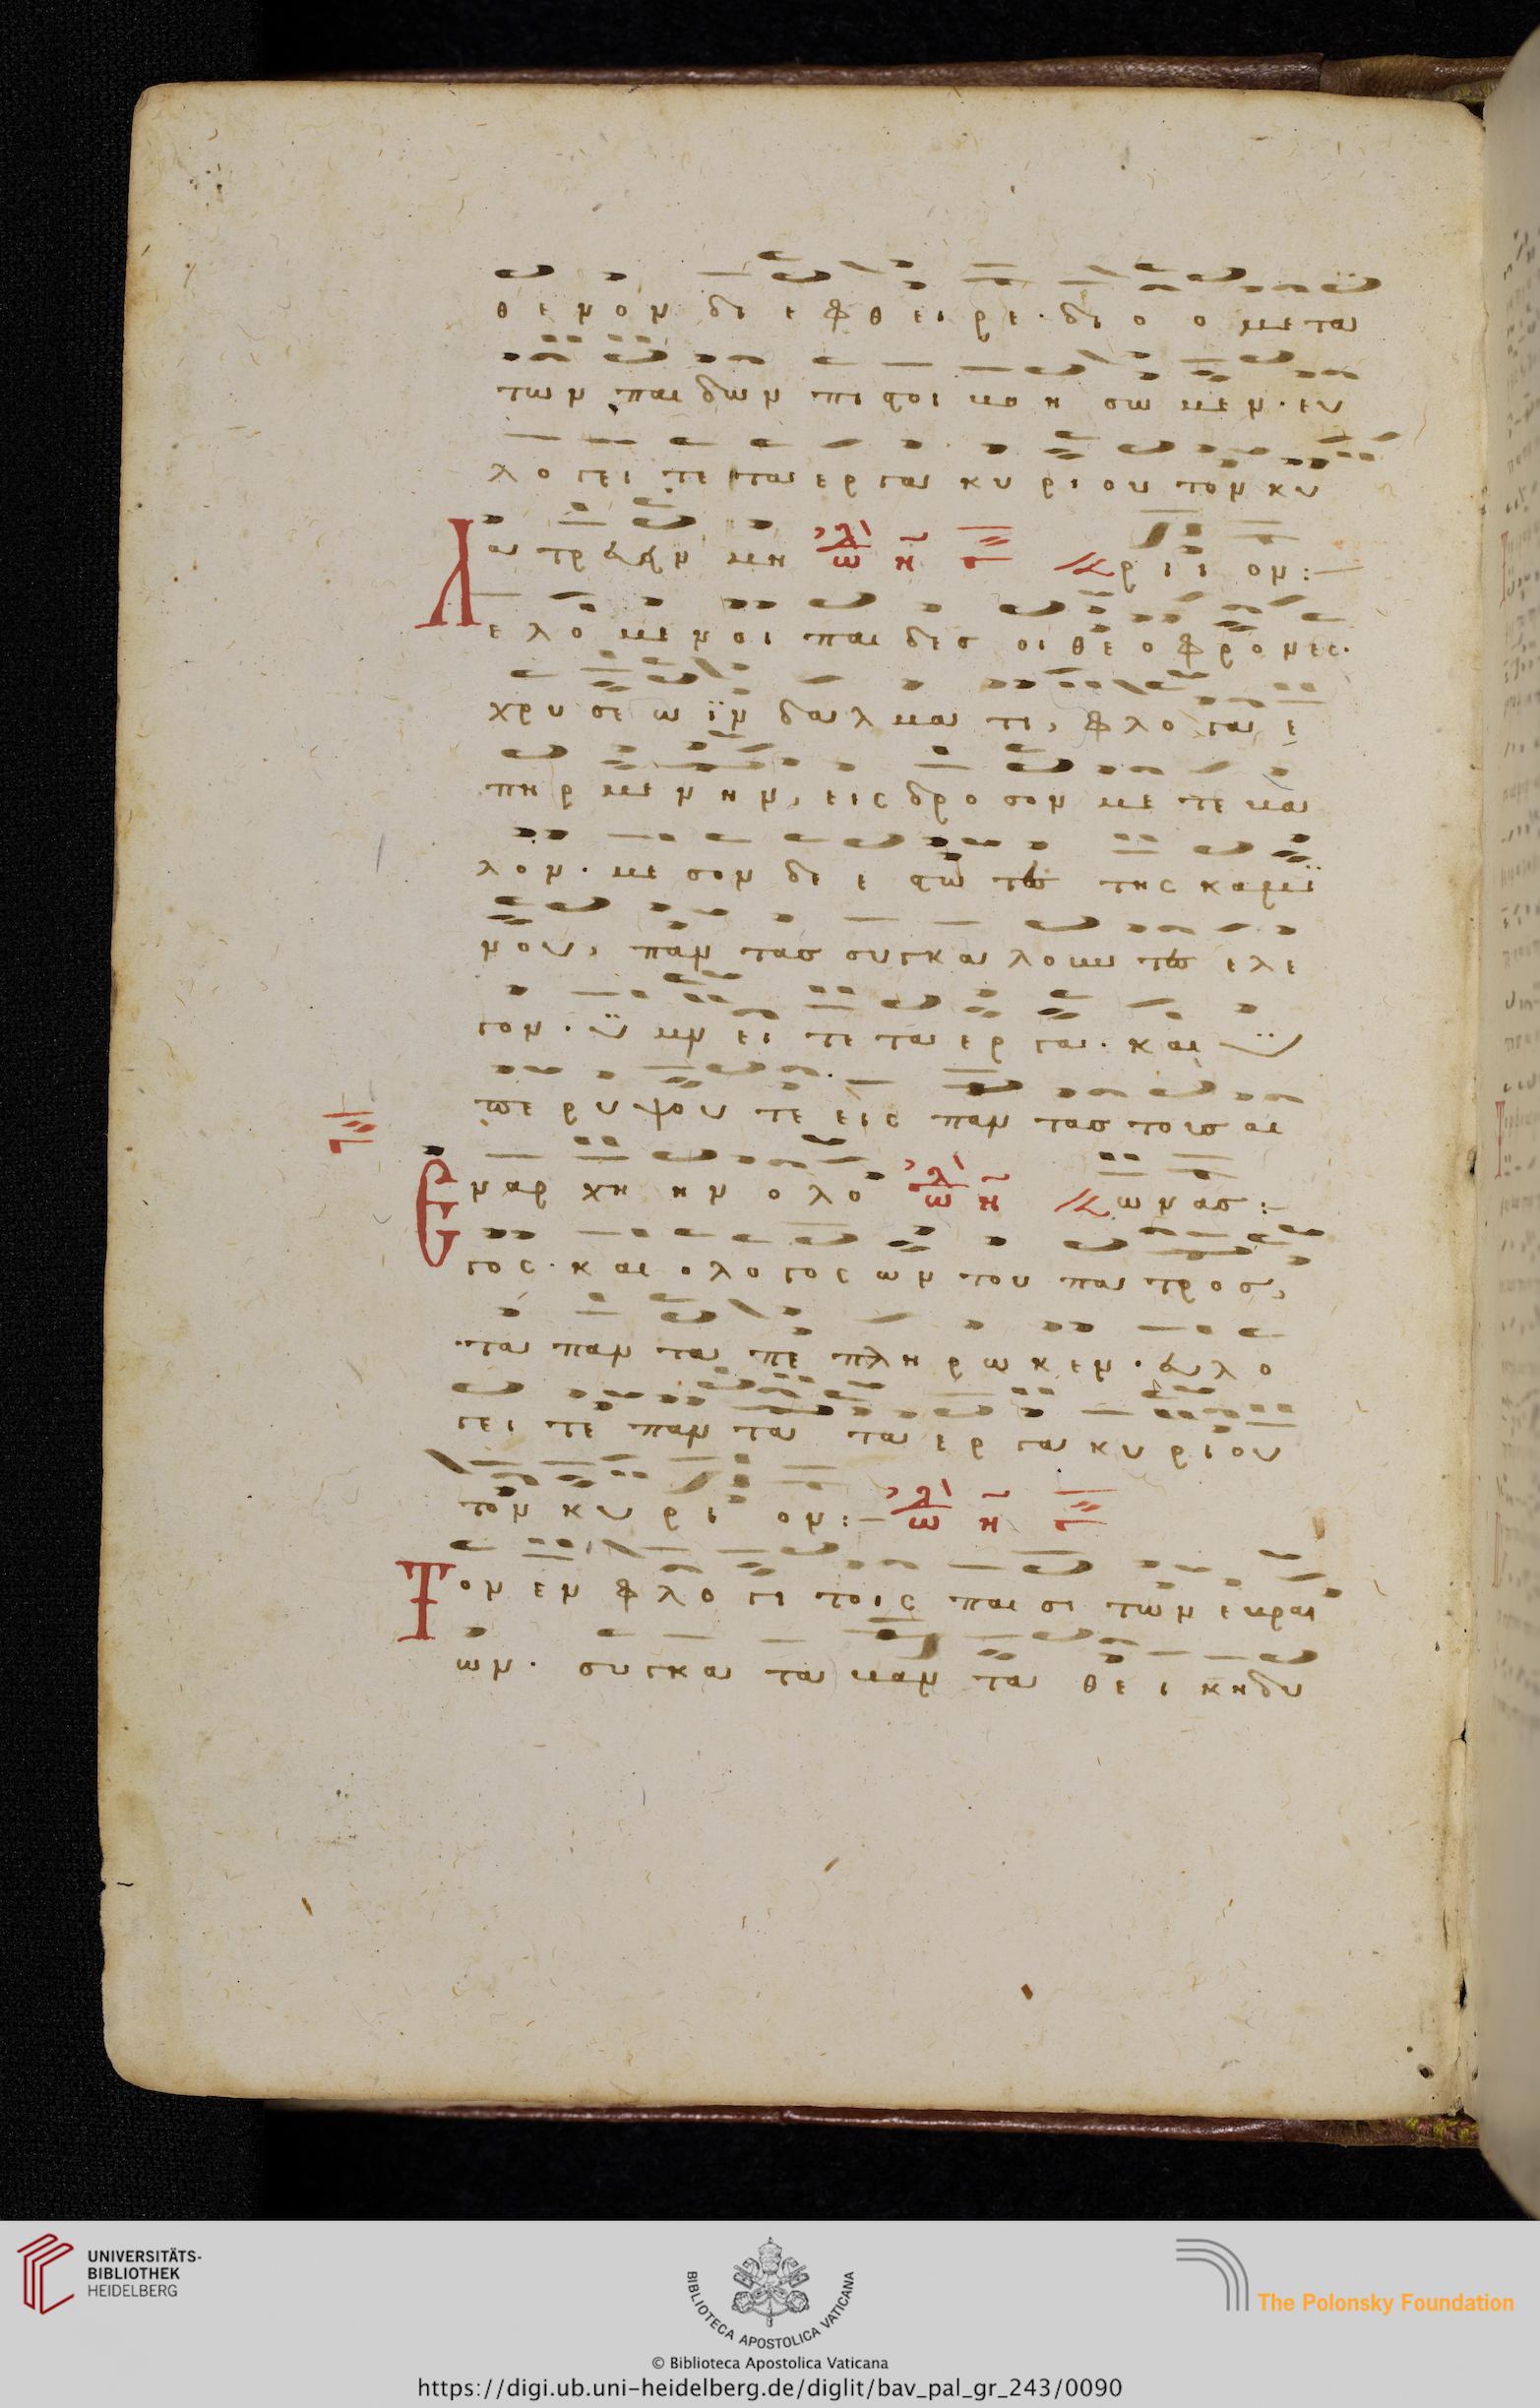 θε μον δι ε φθει ρε· δι ο ο με τα
των παι δων πι ϛοι βο η σω μεν· ευ
λο γει τε τα ερ γα κυ ρι ου τον κυ
μη ρι ι ον:—
ε λο με νοι παι δεσ οι θε ο φρο νες·
χρυ σε ω ϊν δαλ μα τι, φλο γα ε
πηρ με νην, εις δρο σον με τε βα
λον· με σον δε ε ϛω τω της καμϊ
νου, παν τασ συγκα λουν τω ελε
γον· ϋ μν ει τε τα ερ γα· και ϋ
πε ρυψου τε εις παν τασ τουσ αι
Ε ναρ χη ην ο λο ωνασ:—
γος· και ο λο γος ων του πα τροσ,
τα παν τα πε πλη ρω κεν· ευ λο
γει τε παν τα τα ερ γα κυ ριου
τον κυ ρι ον:—
Τ ον εν φλο γι τοις παι σι των εβραι
ων· συγκα τα βαν τα θε ι κη δυ
UNIVERSITÄTS-
BIBLIOTHEK
HEIDELBERG
BIBLIOTECA APOSTOLICA VATICANA
The Polonsky Foundation
© Biblioteca Apostolica Vaticana
https://digi.ub.uni-heidelberg.de/diglit/bav_pal_gr_243/0090